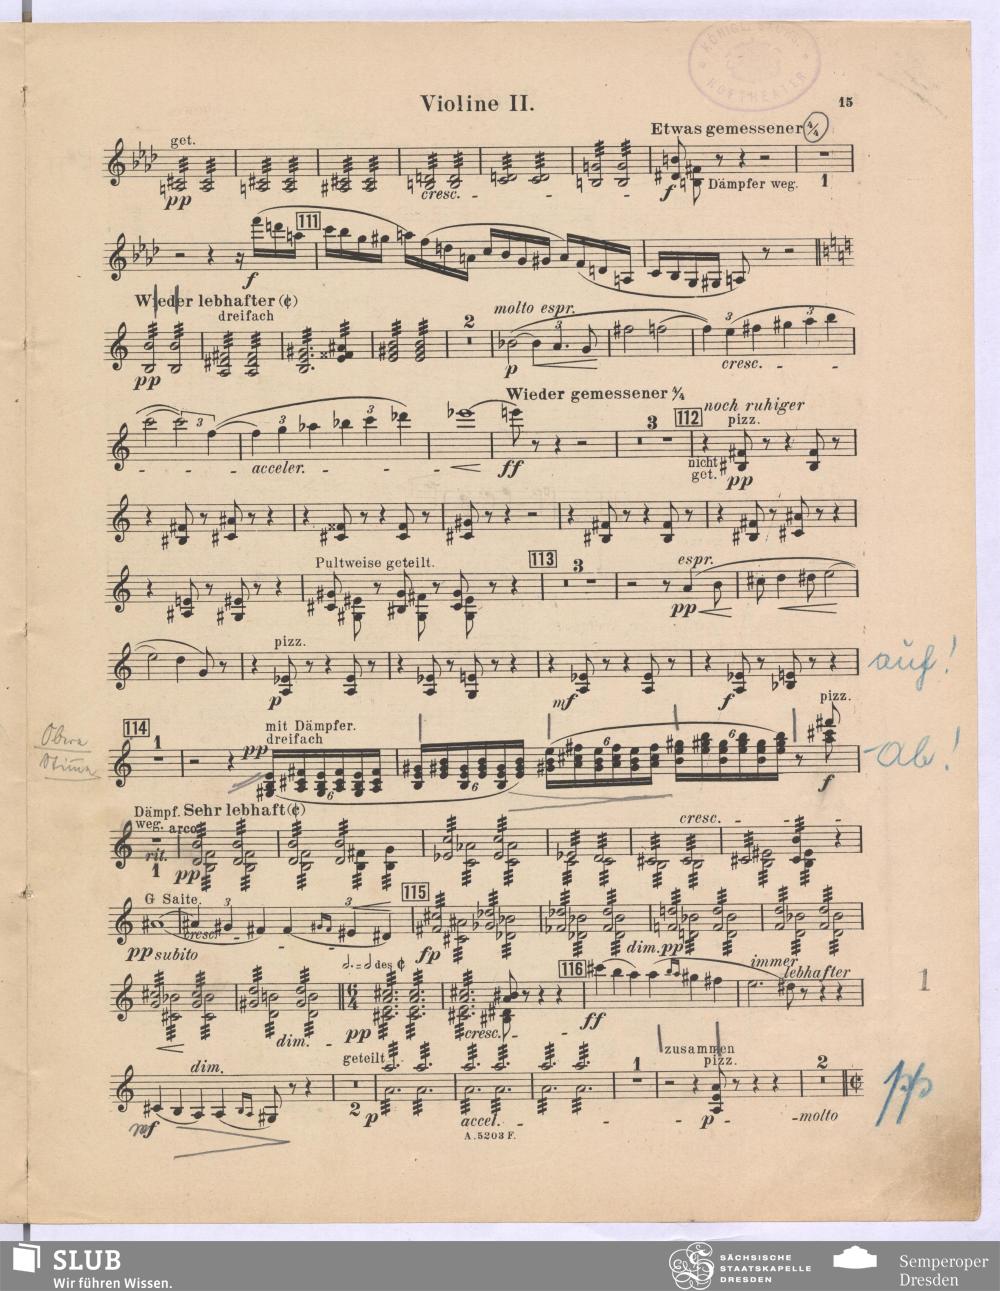 KÖNIGL.
HOFTHEATER
Violine II.
15
Etwas gemessener 4/4
get.
pp
cresc.
f
Dämpfer weg.
1
111
f
Wieder lebhafter (¢)
dreifach
pp
2
molto espr.
3
p
3
cresc.
3
3
acceler.
3
Wieder gemessener 4/4
ff
3
112
noch ruhiger
pizz.
nicht get.
pp
Pultweise geteilt.
113
3
espr.
pp
pizz.
p
mf
f
auf!
pizz.
Obere
114
1
mit Dämpfer.
dreifach
pp
6
6
6
6
f
ab!
Dämpf. weg.
Sehr lebhaft (¢)
arco
rit.
1
pp
cresc.
G Saite.
3
3
115
cresc.
pp subito
fp
dim. pp
𝅗𝅥. = 𝅗𝅥 des ¢
6/4
116
immer lebhafter
dim.
pp
cresc.
ff
1
dim.
geteilt
zusammen
pizz.
1
2
f
2
p
accel.
p
molto
pp
A. 5203 F.
SLUB
Wir führen Wissen.
SÄCHSISCHE
STAATSKAPELLE
DRESDEN
Semperoper
Dresden